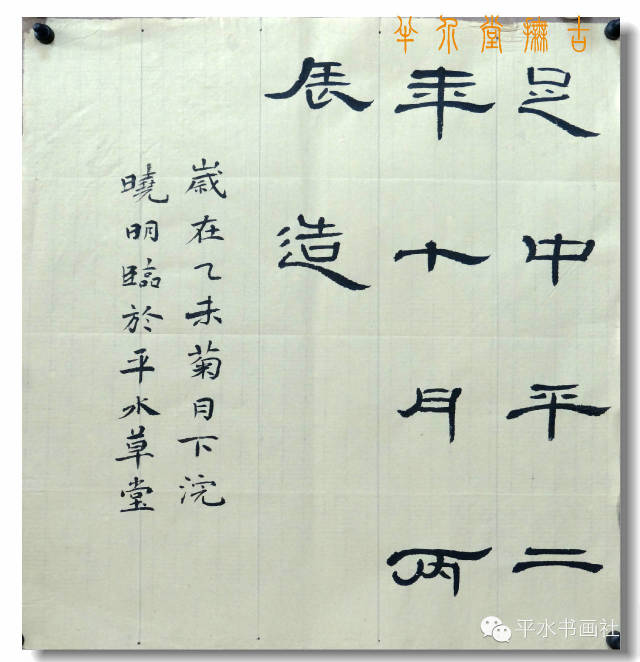 足中平二
年十月丙
辰造
歲在乙未菊月下浣
曉明臨於平水草堂
平水书画社